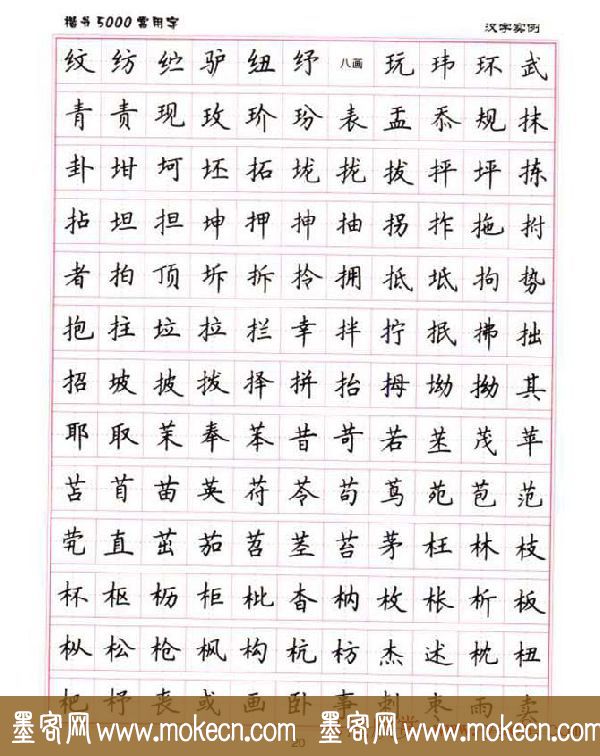 楷书5000常用字 汉字实例
纹 纺 纻 驴 纽 纾 八画 玩 玮 环 武
青 责 现 玫 玠 玢 表 盂 忝 规 抹
卦 坩 坷 坯 拓 垅 拢 拔 抨 坪 拣
拈 坦 担 坤 押 抻 抽 拐 拃 拖 拊
者 拍 顶 坼 拆 拎 拥 抵 坻 拘 势
抱 拄 垃 拉 拦 幸 拌 拧 抿 拂 拙
招 坡 披 拨 择 拚 抬 拇 坳 拗 其
耶 取 茉 奉 苯 昔 苛 若 茂 苹
苫 苜 苗 英 苻 苓 苟 茑 苑 苞 范
茕 直 茁 茄 苕 茎 苔 茅 枉 林 枝
杯 枢 枥 柜 枇 杳 枘 枚 枨 析 板
枞 松 枪 枫 构 杭 枋 杰 述 枕 杻
杷 杼 丧 或 画 卧 事 刺 枣 雨 卖
墨客网 www.mokecn.com 墨客网 www.mokecn.com
20